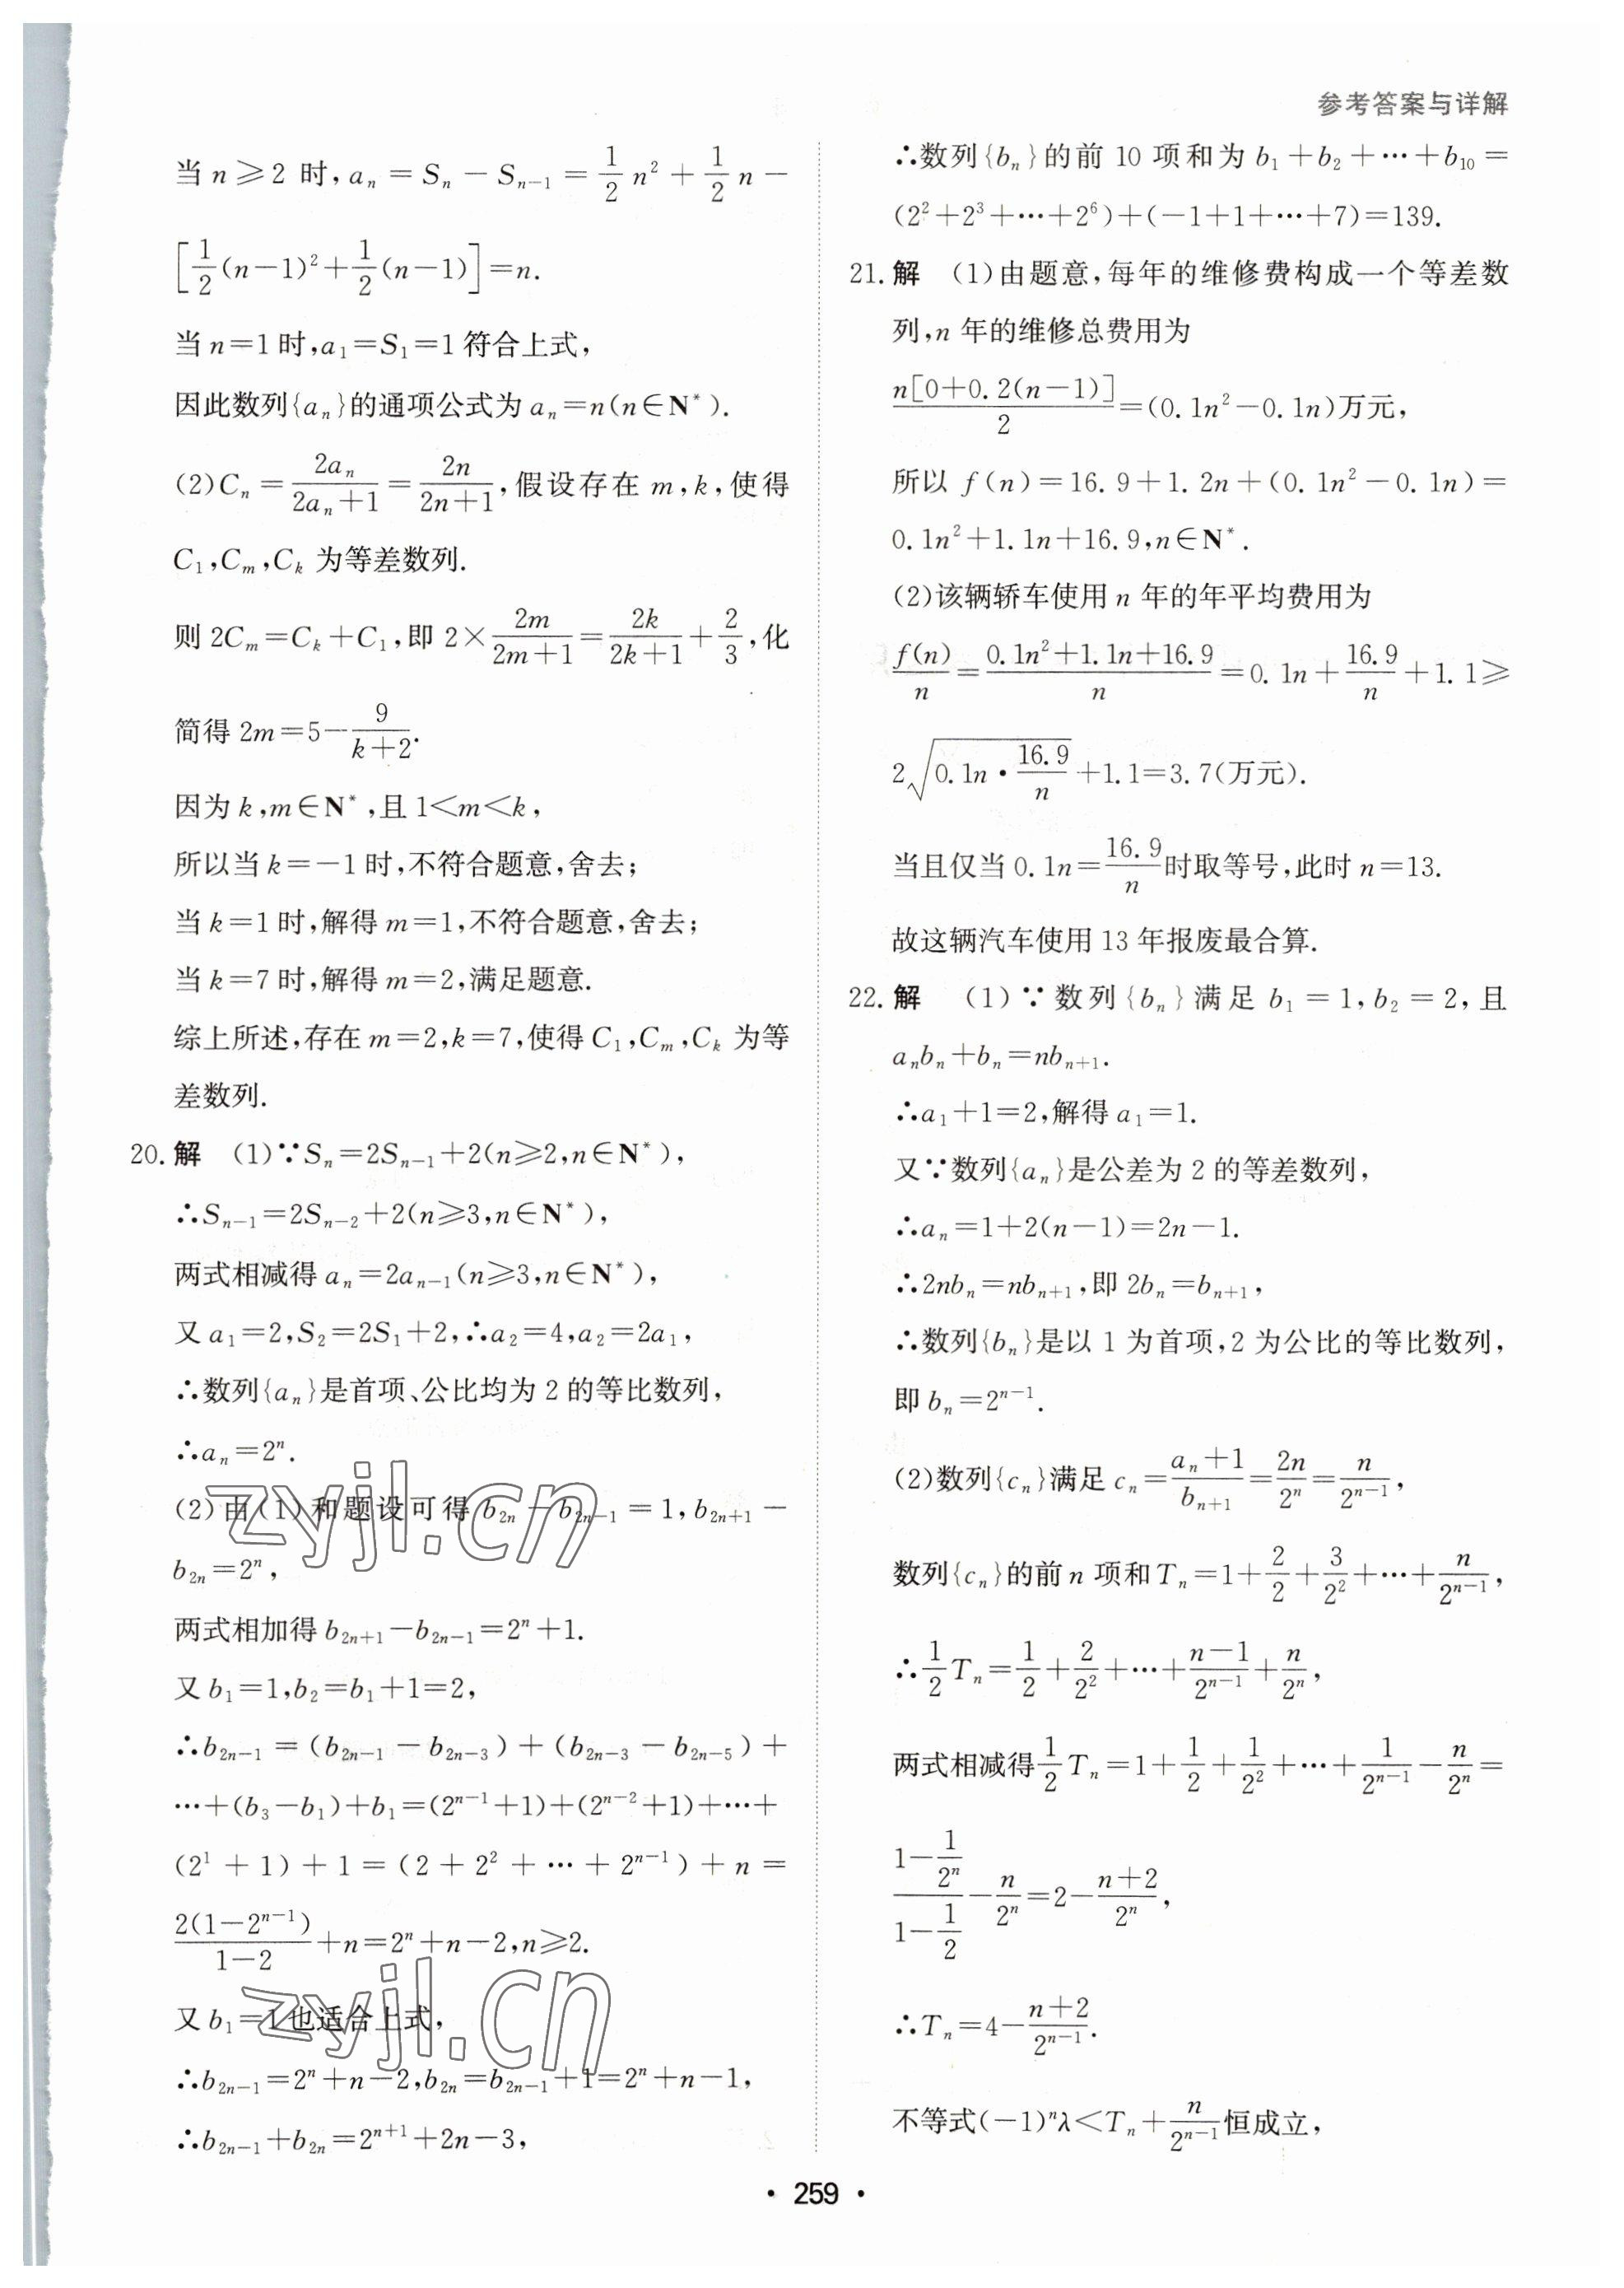 参考答案与详解
当 n≥2 时,aₙ=Sₙ−Sₙ₋₁=\frac{1}{2}n²+\frac{1}{2}n−
[\frac{1}{2}(n−1)²+\frac{1}{2}(n−1)]=n.
当 n=1 时,a₁=S₁=1 符合上式,
因此数列{aₙ}的通项公式为 aₙ=n(n∈N*).
(2)Cₙ=\frac{2aₙ}{2aₙ+1}=\frac{2n}{2n+1},假设存在 m,k,使得
C₁,C_m,C_k 为等差数列.
则 2C_m=C_k+C₁,即 2×\frac{2m}{2m+1}=\frac{2k}{2k+1}+\frac{2}{3},化
简得 2m=5−\frac{9}{k+2}.
因为 k,m∈N*,且 1<m<k,
所以当 k=−1 时,不符合题意,舍去;
当 k=1 时,解得 m=1,不符合题意,舍去;
当 k=7 时,解得 m=2,满足题意.
综上所述,存在 m=2,k=7,使得 C₁,C_m,C_k 为等
差数列.
20. 解 (1)∵Sₙ=2Sₙ₋₁+2(n≥2,n∈N*),
∴Sₙ₋₁=2Sₙ₋₂+2(n≥3,n∈N*),
两式相减得 aₙ=2aₙ₋₁(n≥3,n∈N*),
又 a₁=2,S₂=2S₁+2,∴a₂=4,a₂=2a₁,
∴数列{aₙ}是首项、公比均为 2 的等比数列,
∴aₙ=2ⁿ.
(2)由(1)和题设可得 b₂ₙ−b₂ₙ₋₁=1,b₂ₙ₊₁−
b₂ₙ=2ⁿ,
两式相加得 b₂ₙ₊₁−b₂ₙ₋₁=2ⁿ+1.
又 b₁=1,b₂=b₁+1=2,
∴b₂ₙ₋₁=(b₂ₙ₋₁−b₂ₙ₋₃)+(b₂ₙ₋₃−b₂ₙ₋₅)+
⋯+(b₃−b₁)+b₁=(2ⁿ⁻¹+1)+(2ⁿ⁻²+1)+⋯+
(2¹+1)+1=(2+2²+⋯+2ⁿ⁻¹)+n=
\frac{2(1−2ⁿ⁻¹)}{1−2}+n=2ⁿ+n−2,n≥2.
又 b₁=1 也适合上式,
∴b₂ₙ₋₁=2ⁿ+n−2,b₂ₙ=b₂ₙ₋₁+1=2ⁿ+n−1,
∴b₂ₙ₋₁+b₂ₙ=2ⁿ⁺¹+2n−3,
∴数列{bₙ}的前 10 项和为 b₁+b₂+⋯+b₁₀=
(2²+2³+⋯+2⁶)+(−1+1+⋯+7)=139.
21. 解 (1)由题意,每年的维修费构成一个等差数
列,n 年的维修总费用为
\frac{n[0+0.2(n−1)]}{2}=(0.1n²−0.1n)万元,
所以 f(n)=16.9+1.2n+(0.1n²−0.1n)=
0.1n²+1.1n+16.9,n∈N*.
(2)该辆轿车使用 n 年的年平均费用为
\frac{f(n)}{n}=\frac{0.1n²+1.1n+16.9}{n}=0.1n+\frac{16.9}{n}+1.1≥
2\sqrt{0.1n·\frac{16.9}{n}}+1.1=3.7(万元).
当且仅当 0.1n=\frac{16.9}{n}时取等号,此时 n=13.
故这辆汽车使用 13 年报废最合算.
22. 解 (1)∵数列{bₙ}满足 b₁=1,b₂=2,且
aₙbₙ+bₙ=nbₙ₊₁.
∴a₁+1=2,解得 a₁=1.
又∵数列{aₙ}是公差为 2 的等差数列,
∴aₙ=1+2(n−1)=2n−1.
∴2nbₙ=nbₙ₊₁,即 2bₙ=bₙ₊₁,
∴数列{bₙ}是以 1 为首项,2 为公比的等比数列,
即 bₙ=2ⁿ⁻¹.
(2)数列{cₙ}满足 cₙ=\frac{aₙ+1}{bₙ₊₁}=\frac{2n}{2ⁿ}=\frac{n}{2ⁿ⁻¹},
数列{cₙ}的前 n 项和 Tₙ=1+\frac{2}{2}+\frac{3}{2²}+⋯+\frac{n}{2ⁿ⁻¹},
∴\frac{1}{2}Tₙ=\frac{1}{2}+\frac{2}{2²}+⋯+\frac{n−1}{2ⁿ⁻¹}+\frac{n}{2ⁿ},
两式相减得\frac{1}{2}Tₙ=1+\frac{1}{2}+\frac{1}{2²}+⋯+\frac{1}{2ⁿ⁻¹}−\frac{n}{2ⁿ}=
\frac{1−\frac{1}{2ⁿ}}{1−\frac{1}{2}}−\frac{n}{2ⁿ}=2−\frac{n+2}{2ⁿ},
∴Tₙ=4−\frac{n+2}{2ⁿ⁻¹}.
不等式(−1)ⁿλ<Tₙ+\frac{n}{2ⁿ⁻¹}恒成立,
• 259 •
zyjl.cn
zyjl.cn